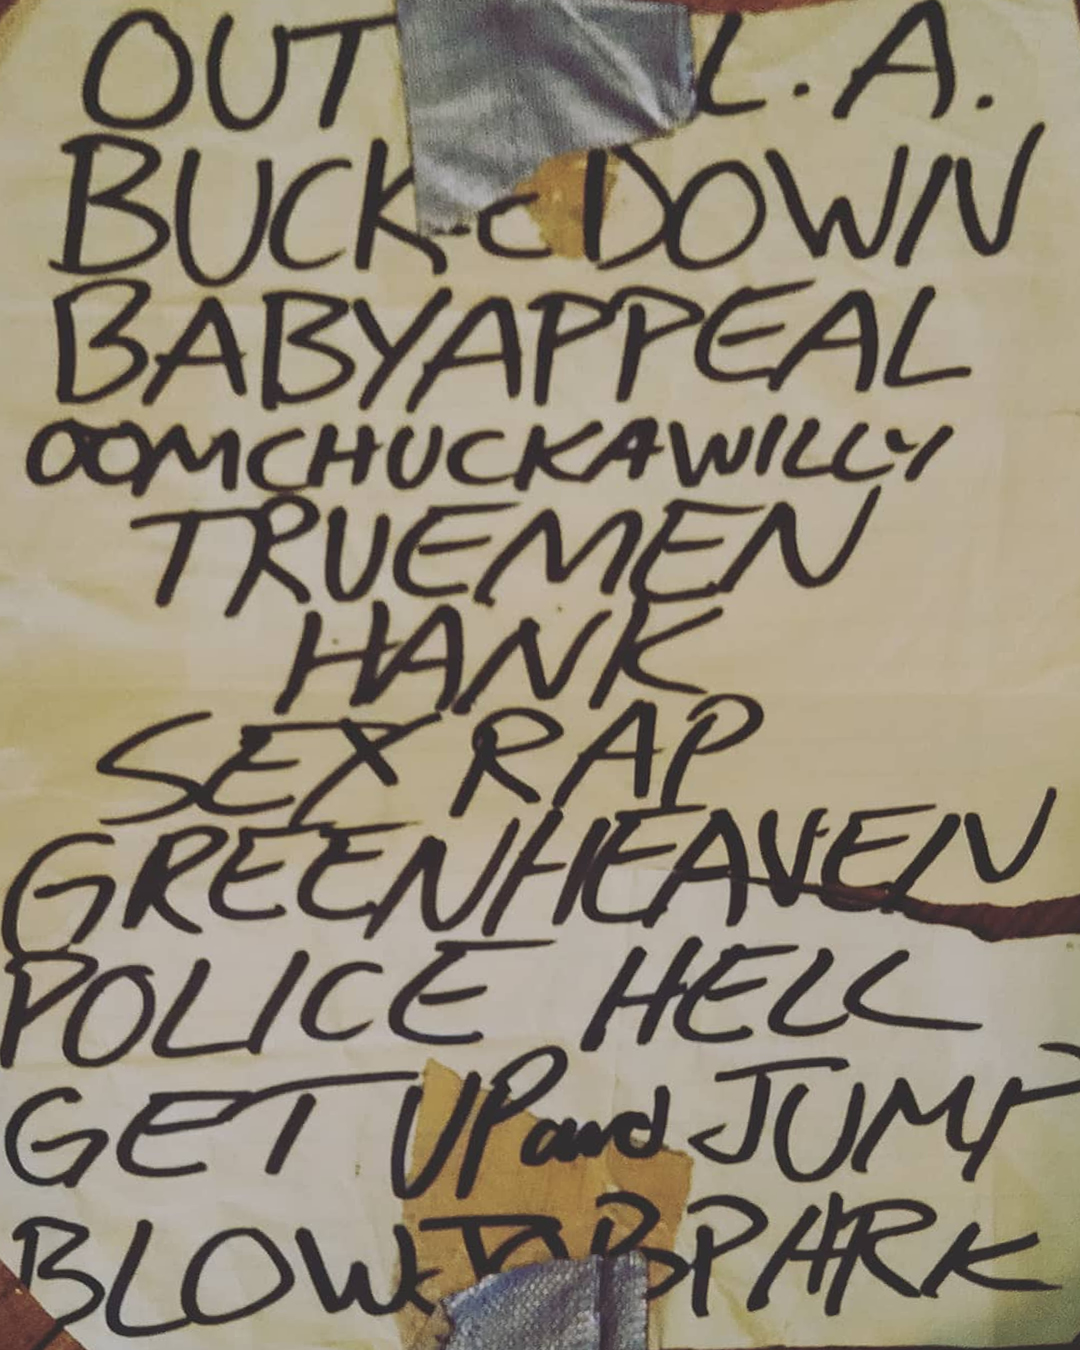 OUT L.A.
BUCKLE DOWN
BABYAPPEAL
OOMCHUCKAWILLY
TRUEMEN
HANK
SEX RAP
GREENHEAVEN
POLICE HELL
GET UP and JUMP
BLOWJOB PARK